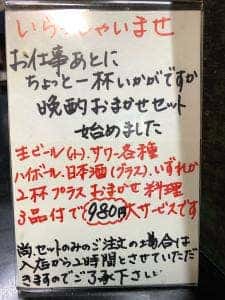 いらっしゃいませ
お仕事あとに
ちょっと一杯いかがですか
晩酌おまかせセット
始めました
生ビール(小)、サワー各種
ハイボール、日本酒(グラス)、いずれか
2杯プラスおまかせ料理
3品付で980円大サービスです
尚、セットのみのご注文の場合は
入店から2時間とさせていただ
きますのでご了承下さい